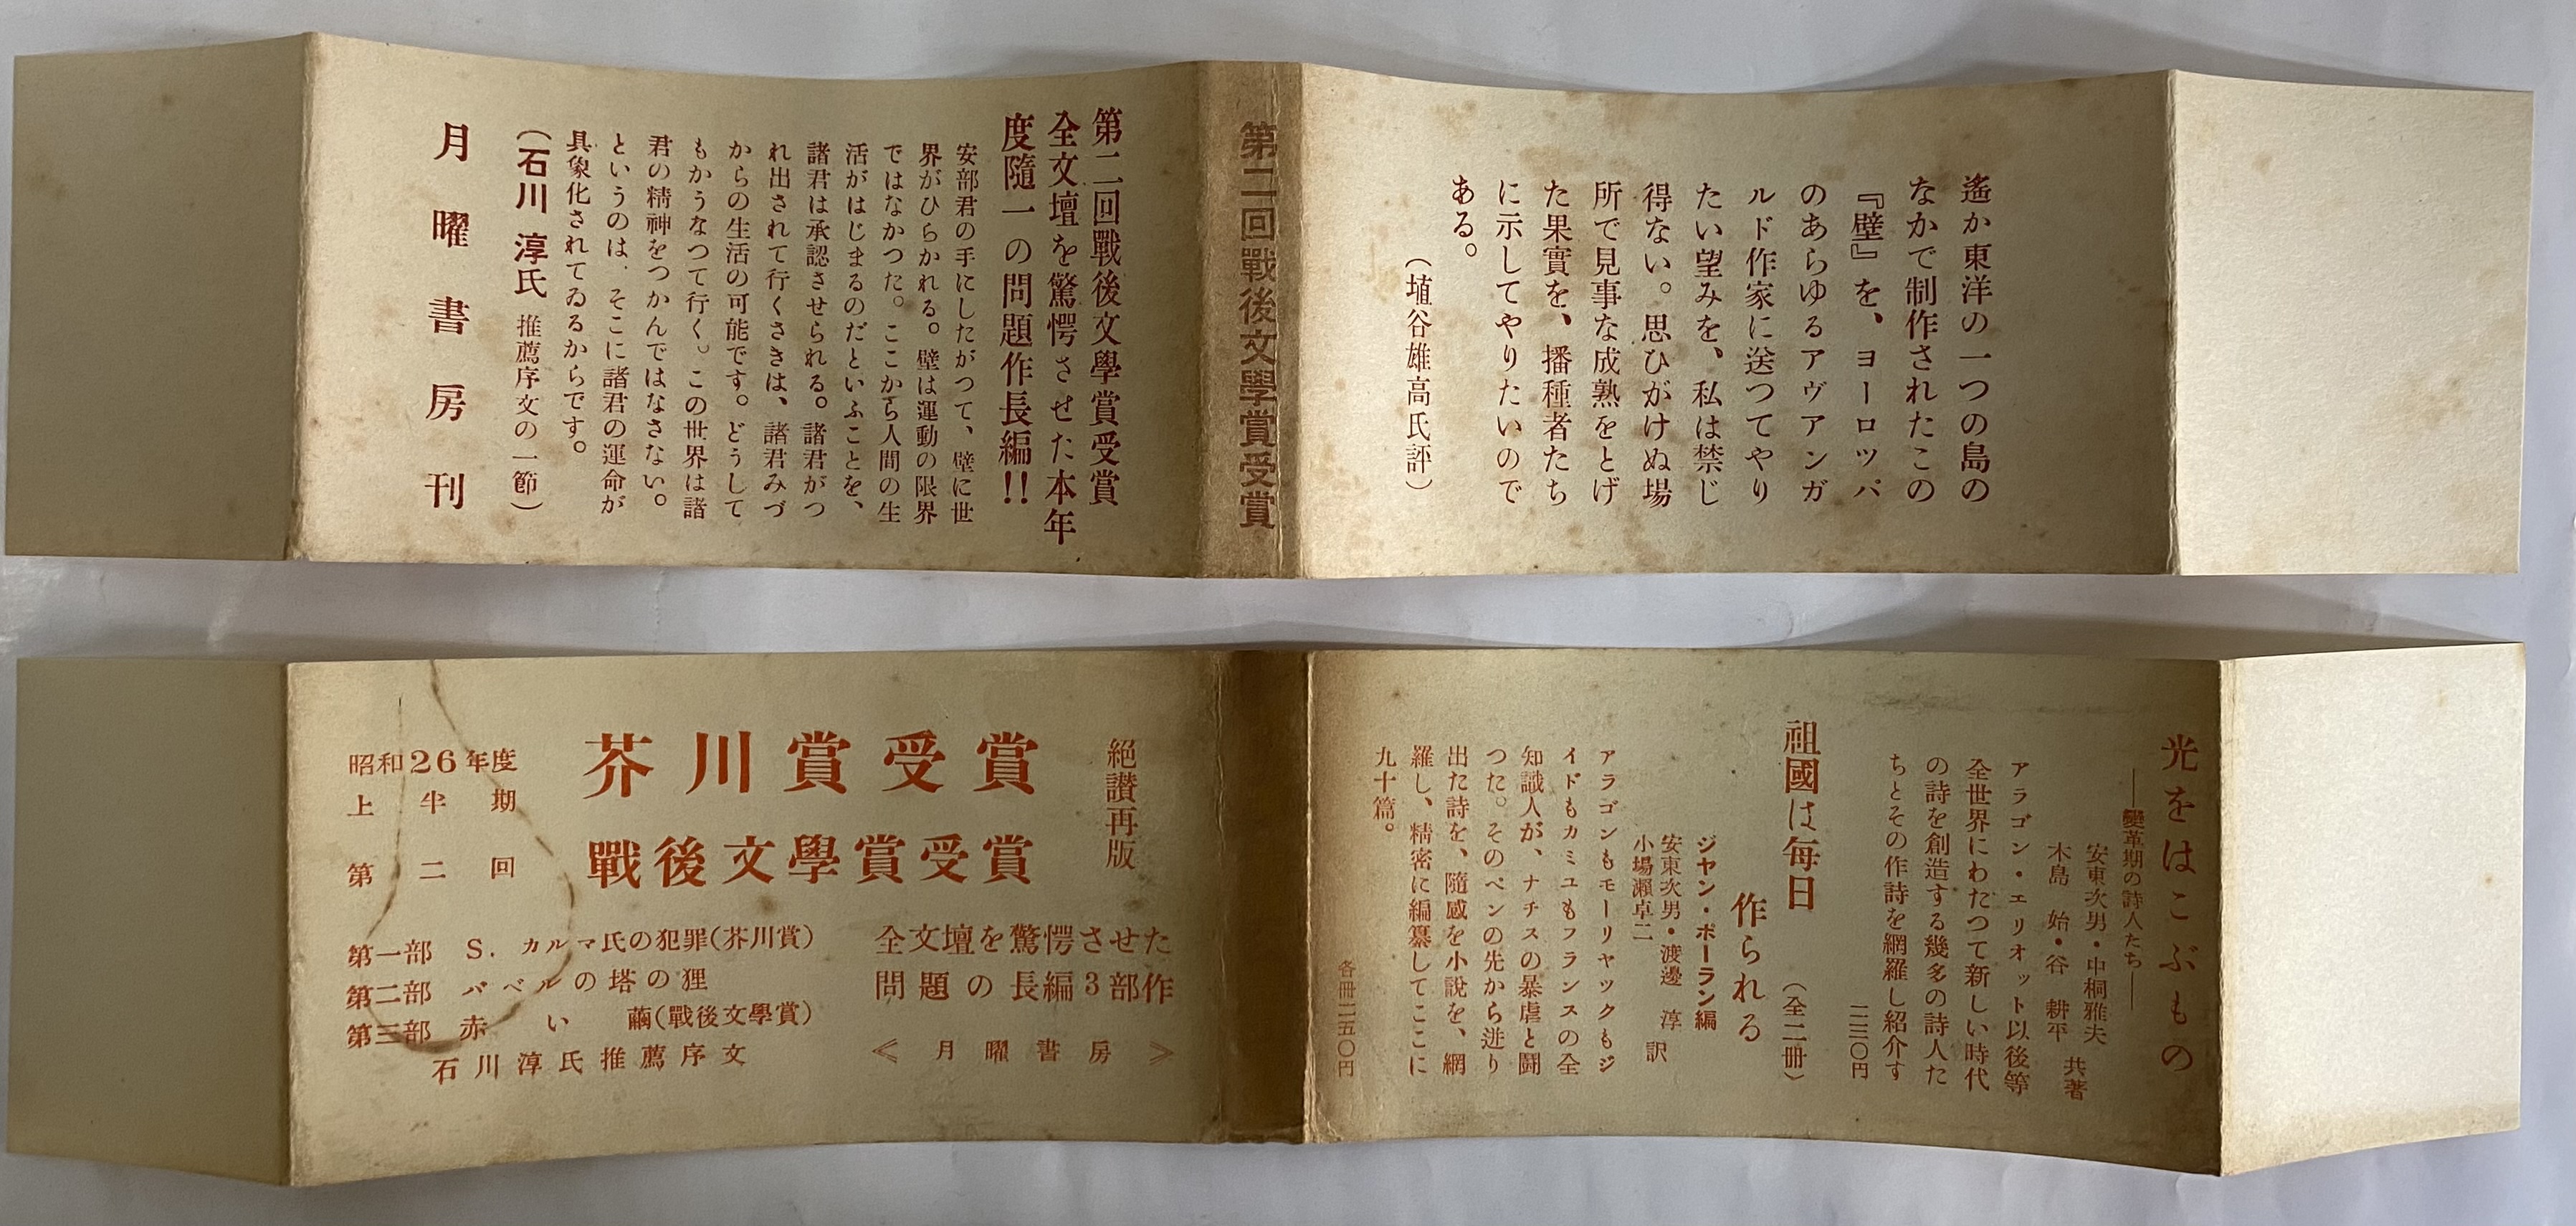 遙か東洋の一つの島の
なかで制作されたこの
『壁』を、ヨーロッパ
のあらゆるアヴアンガ
ルド作家に送つてやり
たい望みを、私は禁じ
得ない。思ひがけぬ場
所で見事な成熟をとげ
た果實を、播種者たち
に示してやりたいので
ある。
（埴谷雄高氏評）
第二回戰後文學賞受賞
第二回戰後文學賞受賞
全文壇を驚愕させた本年
度隨一の問題作長編!!
安部君の手にしたがつて、壁に世
界がひらかれる。壁は運動の限界
ではなかつた。ここから人間の生
活がはじまるのだといふことを、
諸君は承認させられる。諸君がつ
れ出されて行くさきは、諸君みづ
からの生活の可能です。どうして
もかうなつて行く。この世界は諸
君の精神をつかんではなさない。
というのは、そこに諸君の運命が
具象化されてゐるからです。
（石川淳氏 推薦序文の一節）
月曜書房刊
光をはこぶもの
――變革期の詩人たち――
安東次男・中桐雅夫
木島 始・谷 耕平 共著
アラゴン・エリオット以後等
全世界にわたつて新しい時代
の詩を創造する幾多の詩人た
ちとその作詩を網羅し紹介す
二三〇円
祖國は每日
作られる（全二冊）
ジヤン・ポーラン編
安東次男・渡邊 淳
小場瀬卓二 訳
アラゴンもモーリヤックもジ
イドもカミユもフランスの全
知識人が、ナチスの暴虐と鬪
つた。そのペンの先から迸り
出た詩を、隨感を小説を、網
羅し、精密に編纂してここに
九十篇。
各冊二五〇円
絶讃再版
昭和26年度
上半期
芥川賞受賞
第二回
戰後文學賞受賞
第一部 S. カルマ氏の犯罪(芥川賞)
第二部 バベルの塔の狸
第三部 赤い繭(戰後文學賞)
石川淳氏推薦序文
全文壇を驚愕させた
問題の長編3部作
≪月曜書房≫